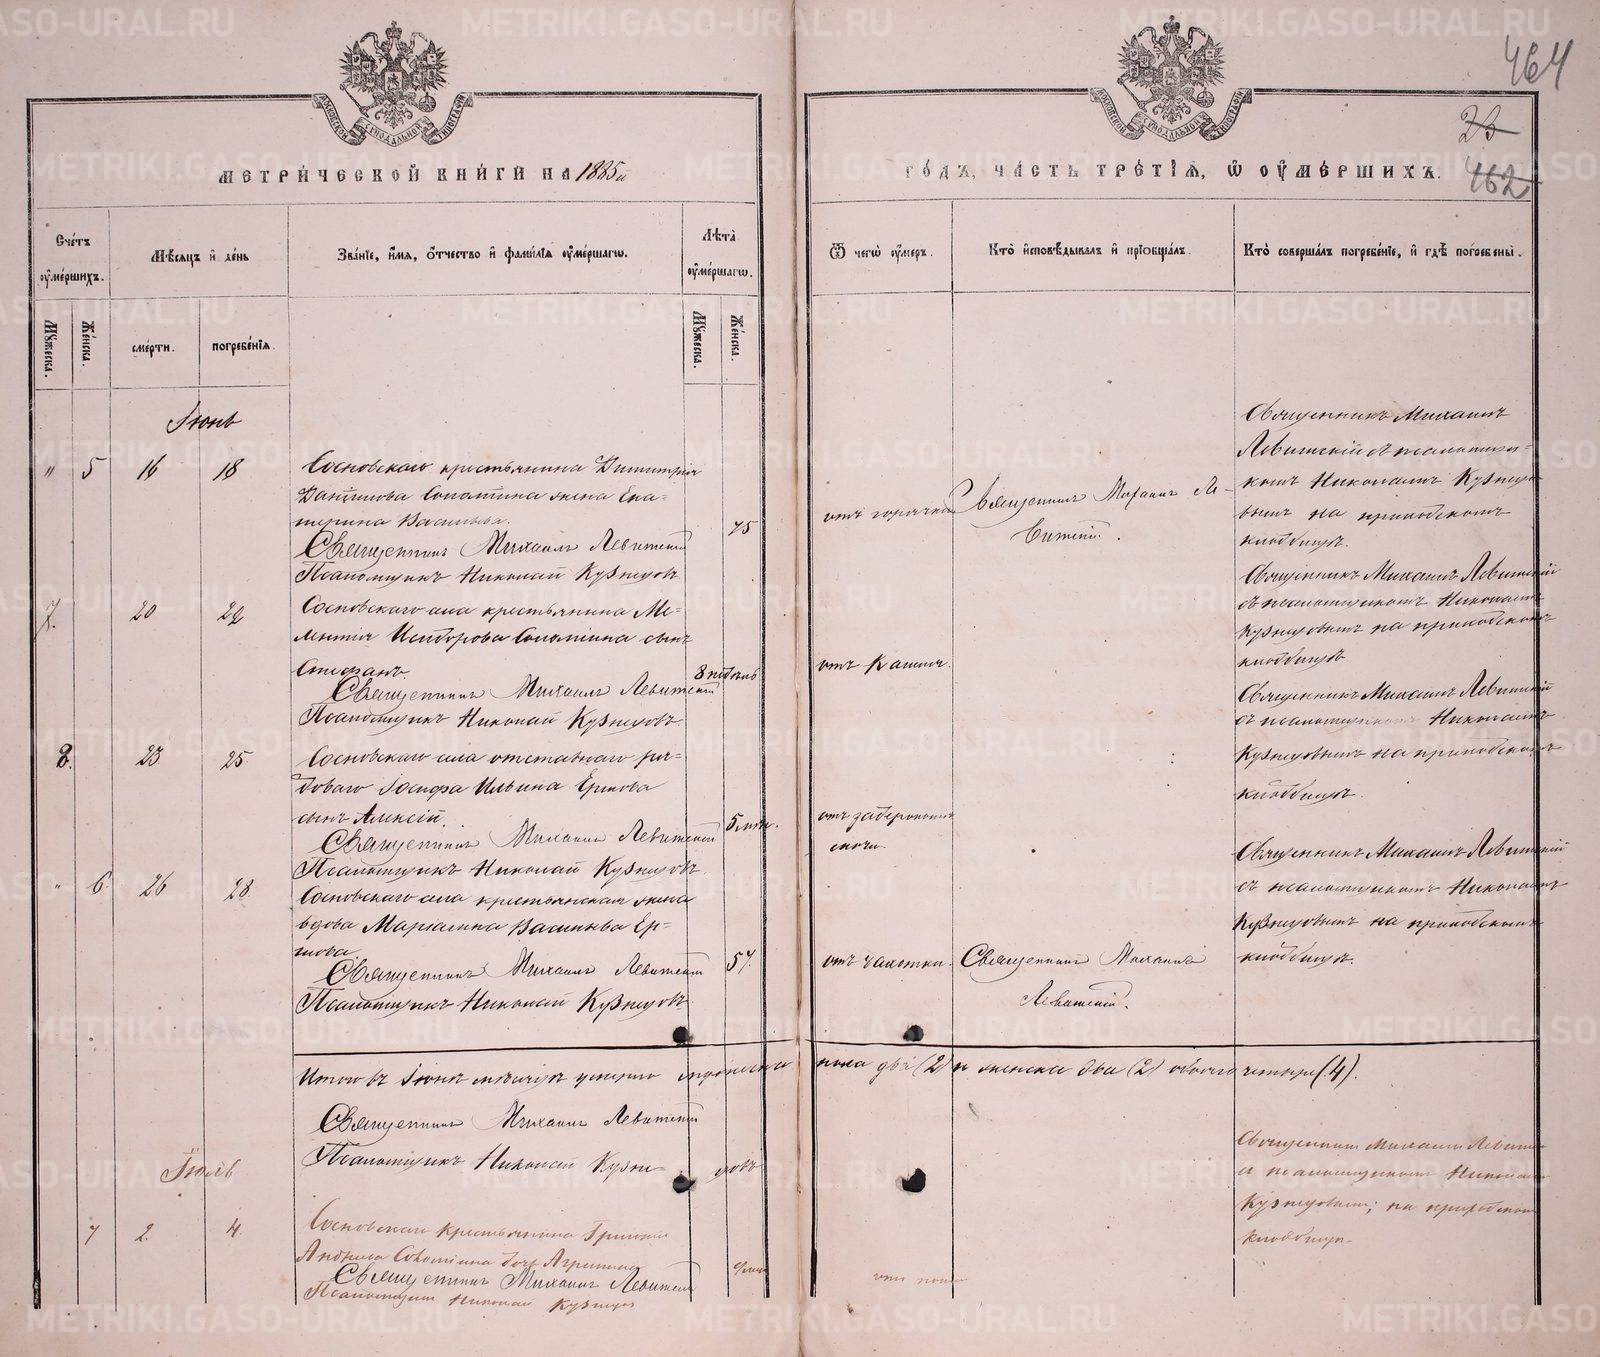 464
23
462
МЕТРИЧЕСКОЙ КНИГИ НА 1885й
ГОДЪ, ЧАСТЬ ТРЕТІЯ, Ѿ ОУМЕРШИХЪ.
Счетъ оумершихъ.
Мѣсяцъ и день
Званіе, имя, отчество и фамилія оумершагѡ.
Лѣта оумершагѡ.
Ѿ чегѡ оумеръ.
Кто исповѣдывалъ и пріобщалъ.
Кто совершалъ погребеніе, и гдѣ погребены.
Мужеска.
Женска.
смерти.
погребенія.
Мужеска.
Женска.
Іюнь
" 5 16 18
Сосновскаго крестьянина Димитрія
Данилова Сопотина жена Ека-
терина Васильева.
75
отъ горячки
Священникъ Михаилъ Ле-
витскій.
Священникъ Михаилъ
Левитскій съ псаломщи-
комъ Николаемъ Кузнецо-
вымъ на приходскомъ
кладбищѣ.
Священникъ Михаилъ Левитскій
Псаломщикъ Николай Кузнецовъ
7. 20 22
Сосновскаго села крестьянина Ме-
лентія Исидорова Сопотина сынъ
Стефанъ
8 недѣль
отъ кашля.
Священникъ Михаилъ Левитскій
съ псаломщикомъ Николаемъ
Кузнецовымъ на приходскомъ
кладбищѣ
Священникъ Михаилъ Левитскій
Псаломщикъ Николай Кузнецовъ.
8. 23 25
Сосновскаго села отставнаго ря-
доваго Іосифа Ильина Ершова
сынъ Алексій.
5 лѣт.
Священникъ Михаилъ Левитскій
съ псаломщикомъ Николаемъ
Кузнецовымъ на приходскомъ
кладбищѣ.
Священникъ Михаилъ Левитскій
Псаломщикъ Николай Кузнецовъ.
" 6. 26 28
Сосновскаго села крестьянская жена
вдова Васильева Ер-
шова.
57.
отъ чахотки.
Священникъ Михаилъ
Левитскій.
Священникъ Михаилъ Левитскій
съ псаломщикомъ Николаемъ
Кузнецовымъ на приходскомъ
кладбищѣ.
Священникъ Михаилъ Левитскій
Псаломщикъ Николай Кузнецовъ
Итого въ Іюнѣ мѣсяцѣ умерло мужеска пола два (2) и женска два (2) обоего четыре (4).
Священникъ Михаилъ Левитскій
Псаломщикъ Николай Кузнецовъ
Іюль
7 2. 4.
Сосновскаго крестьянина
дочь
Священникъ Михаилъ Левитскій
Псаломщикъ Николай Кузнецов
Священник Михаил
и псаломщиком Николаем
Кузнецовым; на приходском
кладбищѣ
METRIKI.GASO-URAL.RU